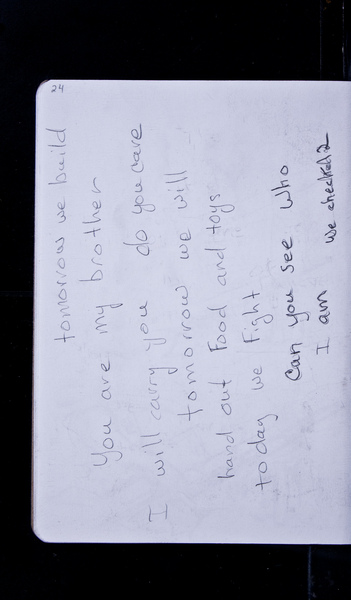 24
tomorrow we build
You are my brother
I will carry you do you care
tomorrow we will
hand out Food and toys
today we Fight
Can you see who
I am we checked 2